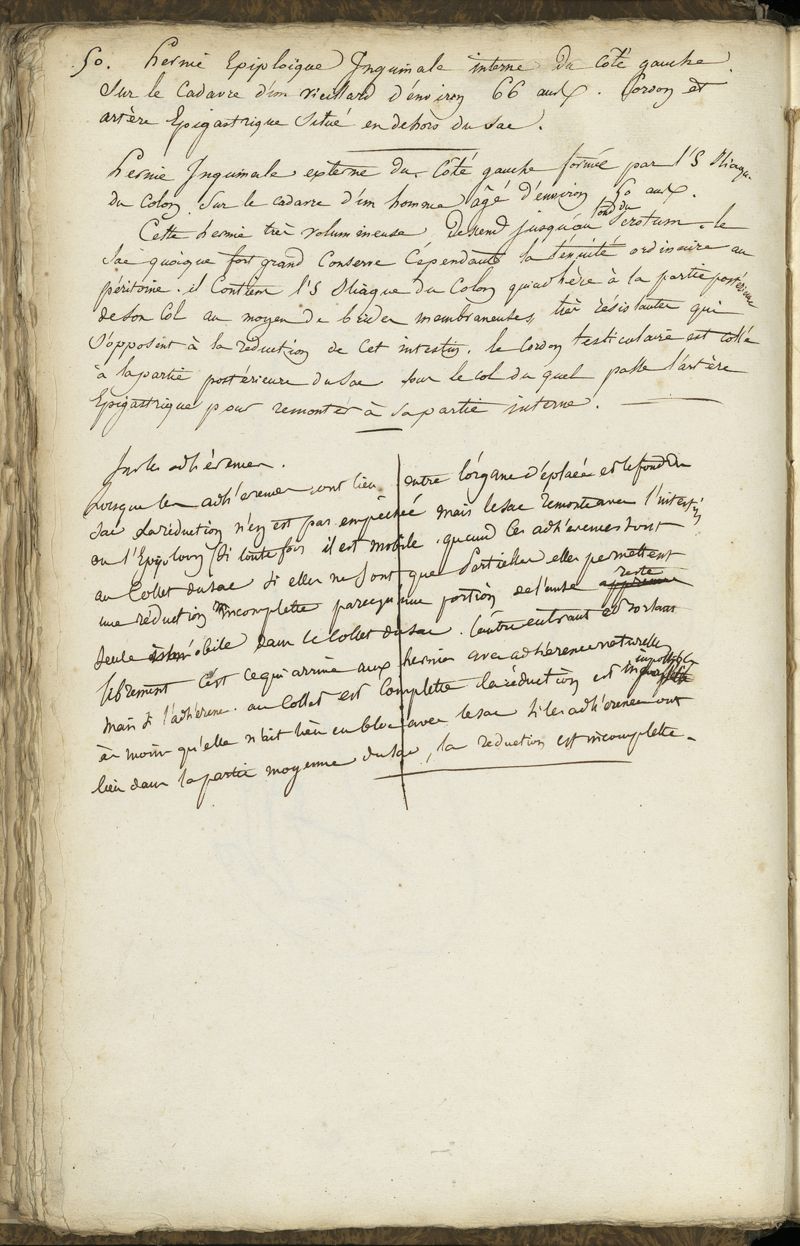 50. hernie Epiploique Inguinale interne du côté gauche.
Sur le Cadavre d'un vieillard d'environ 66 ans. Cordon et
artère Epigastrique Situé en dehors du Sac.
hernie Inguinale externe du Côté gauche formée par l'S Iliaque
du Colon. Sur le cadavre d'un homme âgé d'environ 50 ans.
Cette hernie très volumineuse, descend jusqu'au fond du Scrotum. le
Sac quoique fort grand Conserve Cépendant la tenuité ordinaire au
péritoine. il Contient l'S Iliaque du Colon qui adhère à la partie postérieure
de Son Col au moyen de brides membraneuses, très résistantes qui
S'opposent à la réduction de cet intestin. le Cordon testiculaire est collé
à la partie postérieure du Sac sur le col du quel passe l'artère
Epigastrique pour remonter à Sa partie interne.
Sur les adhérences.
Lorsque les adhérences ont lieu entre l'organe déplacé et le fond du
Sac la réduction n'en est pas empêchée mais le sac remonte avec l'intestin
ou l'Epiploon, Si toute fois il est mobile. quand les adhérences sont
au Collet du Sac Si elles ne Sont que Partielles elles permettent
une réduction incomplette parcequ'une portion de l'anse reste
Seule immobile dans le Collet du Sac. l'autre entrant et sortant
librement C'est ce qui arrive aux hernies avec adhérence naturelle
mais si l'adhérence au Collet est Complette la réduction est impossible
à moins qu'elle n'ait lieu en bloc avec le sac Si les adhérences ont
lieu dans la partie moyenne du Sac, la réduction est incomplette.